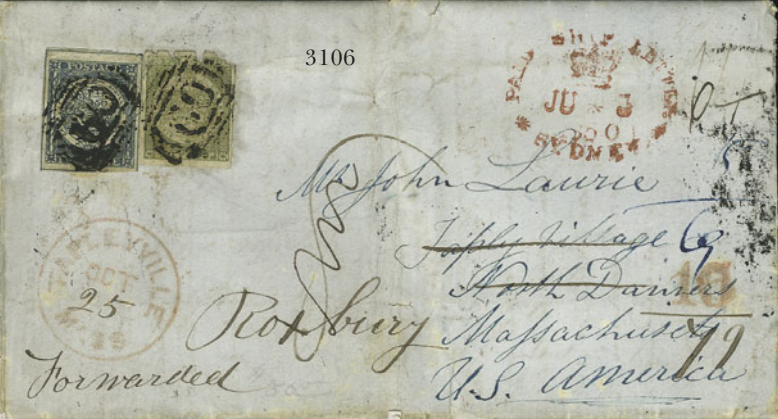 3106
POSTAGE
PAID SHIP LETTER
JU * 3
1850
SYDNEY
Mr John Laurie
Taply Village
North Danvers
Roxbury
Massachusetts
U.S. America
TAPLEYVILLE
OCT
25
MASS
Forwarded
10